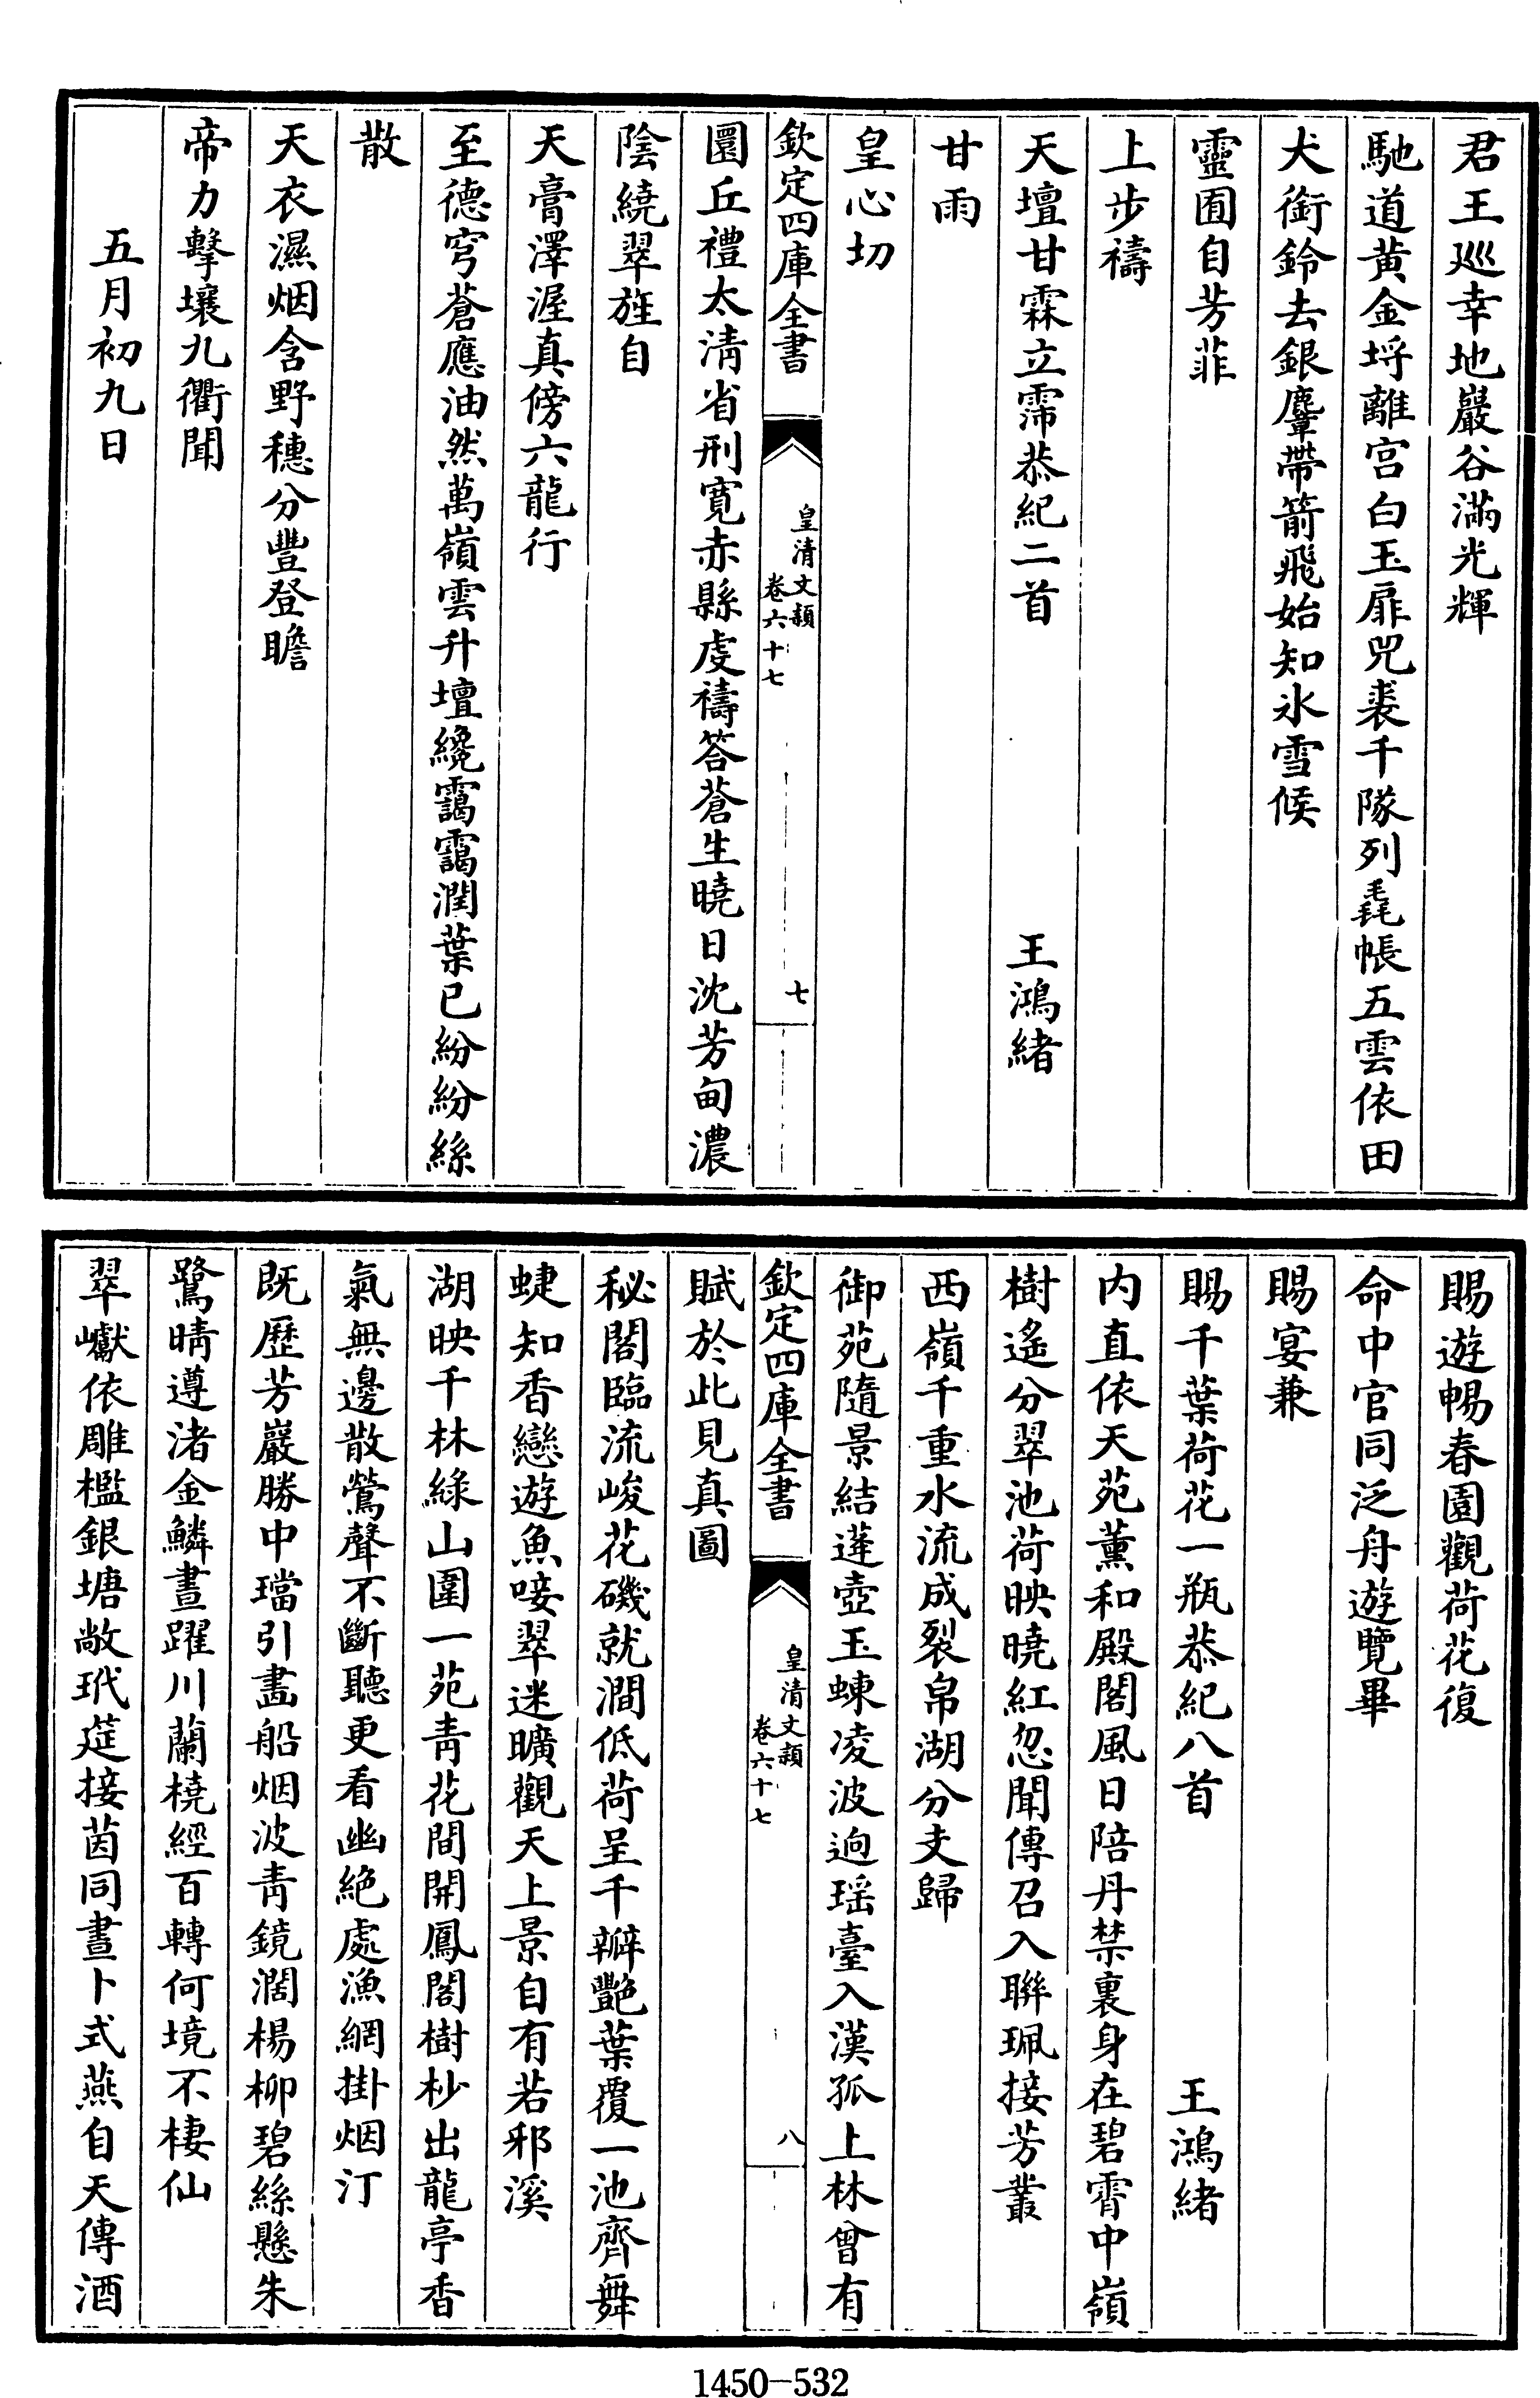 君王巡幸地巖谷滿光輝
馳道黃金埒離宫白玉扉兕裘千隊列毳帳五雲依田
犬銜鈴去銀麞帶箭飛始知氷雪候
靈囿自芳菲
上步禱
天壇甘霖立霈恭紀二首 王鴻緒
甘雨
皇心切
欽定四庫全書 皇清文穎 卷六十七 七
圜丘禮太清省刑寛赤縣虔禱答蒼生曉日沈芳甸濃
陰繞翠旌自
天膏澤渥真傍六龍行
至德穹蒼應油然萬嶺雲升壇纔靄靄潤葉已紛紛絲
散
天衣濕烟含野穗分豐登瞻
帝力擊壤九衢聞
五月初九日
賜遊暢春園觀荷花復
命中官同泛舟遊覽畢
賜宴兼
賜千葉荷花一瓶恭紀八首 王鴻緒
内直依天苑薰和殿閣風日陪丹禁裏身在碧霄中嶺
樹遙分翠池荷映曉紅忽聞傳召入聯珮接芳叢
西嶺千重水流成裂帛湖分支歸
御苑隨景結蓬壺玉蝀凌波逈瑶臺入漢孤上林曾有
欽定四庫全書 皇清文穎 卷六十七 八
賦於此見真圖
秘閣臨流峻花磯就澗低荷呈千瓣艷葉覆一池齊舞
蜨知香戀遊魚唼翠迷曠觀天上景自有若邪溪
湖映千林綠山圍一苑青花間開鳳閣樹杪出龍亭香
氣無邊散鶯聲不斷聽更看幽絶處漁網掛烟汀
既歷芳巖勝中璫引畵船烟波青鏡濶楊柳碧絲懸朱
鷺晴遵渚金鱗晝躍川蘭橈經百轉何境不棲仙
翠巘依雕檻銀塘敞玳筵接茵同晝卜式燕自天傳酒
1450—532